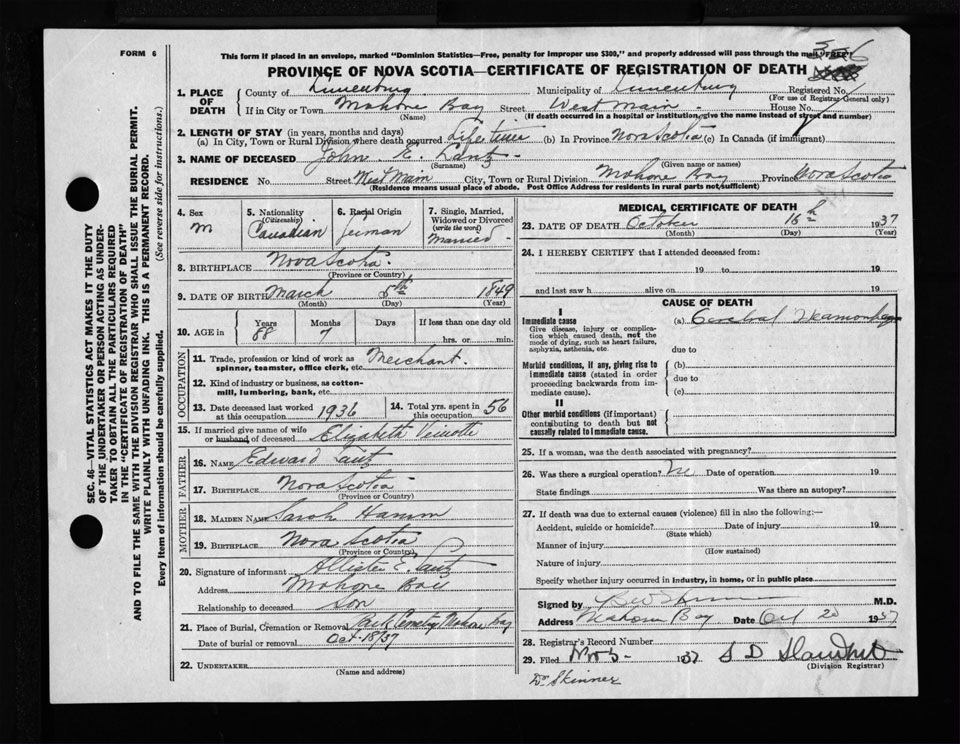 FORM 6
This form if placed in an envelope, marked "Dominion Statistics—Free, penalty for improper use $300," and properly addressed will pass through the mail "FREE"
336
PROVINCE OF NOVA SCOTIA—CERTIFICATE OF REGISTRATION OF DEATH
1. PLACE OF DEATH County of Lunenburg Municipality of Lunenburg Registered No.
(For use of Registrar General only)
If in City or Town Mahone Bay Street West Main House No.
(Name) (If death occurred in a hospital or institution, give the name instead of street and number)
2. LENGTH OF STAY (in years, months and days)
(a) In City, Town or Rural Division where death occurred Life time (b) In Province Nova Scotia (c) In Canada (if immigrant)
3. NAME OF DECEASED John E. Lantz
(Surname) (Given name or names)
RESIDENCE No. Street West Main City, Town or Rural Division Mahone Bay Province Nova Scotia
(Residence means usual place of abode. Post Office Address for residents in rural parts not sufficient)
4. Sex M
5. Nationality (Citizenship) Canadian
6. Racial Origin German
7. Single, Married, Widowed or Divorced (write the word) Married
8. BIRTHPLACE Nova Scotia
(Province or Country)
9. DATE OF BIRTH March 8th 1849
(Month) (Day) (Year)
10. AGE in Years Months Days If less than one day old
88 7 hrs. or min.
OCCUPATION
11. Trade, profession or kind of work as spinner, teamster, office clerk, etc. Merchant
12. Kind of industry or business, as cotton-mill, lumbering, bank, etc.
13. Date deceased last worked at this occupation 1936
14. Total yrs. spent in this occupation 56
15. If married give name of wife or husband of deceased Elizabeth Veinotte
FATHER
16. NAME Edward Lantz
17. BIRTHPLACE Nova Scotia
(Province or Country)
MOTHER
18. MAIDEN NAME Sarah Hamm
19. BIRTHPLACE Nova Scotia
(Province or Country)
20. Signature of informant Allister E. Lantz
Address Mahone Bay
Relationship to deceased Son
21. Place of Burial, Cremation or Removal Park Cemetery Mahone Bay
Date of burial or removal Oct. 18/37
22. UNDERTAKER
(Name and address)
MEDICAL CERTIFICATE OF DEATH
23. DATE OF DEATH October 16th 1937
(Month) (Day) (Year)
24. I HEREBY CERTIFY that I attended deceased from:
19 to 19
and last saw h alive on 19
CAUSE OF DEATH
I
Immediate cause
Give disease, injury or complication which caused death, not the mode of dying, such as heart failure, asphyxia, asthenia, etc.
(a) Cerebral Heamorrhage
due to
Morbid conditions, if any, giving rise to immediate cause (stated in order proceeding backwards from immediate cause).
(b)
due to
(c)
II
Other morbid conditions (if important) contributing to death but not causally related to immediate cause.
25. If a woman, was the death associated with pregnancy?
26. Was there a surgical operation? No Date of operation 19
State findings Was there an autopsy?
27. If death was due to external causes (violence) fill in also the following:—
Accident, suicide or homicide? Date of injury 19
(State which)
Manner of injury
(How sustained)
Nature of injury
Specify whether injury occurred in industry, in home, or in public place
Signed by Skinner M.D.
Address Mahone Bay Date Oct 20 1937
28. Registrar's Record Number
29. Filed Nov 5 1937 S D
(Division Registrar)
Dr Skinner
SEC. 46—VITAL STATISTICS ACT MAKES IT THE DUTY
OF THE UNDERTAKER OR PERSON ACTING AS UNDER-
TAKER TO OBTAIN ALL THE PARTICULARS REQUIRED
IN THE "CERTIFICATE OF REGISTRATION OF DEATH"
AND TO FILE THE SAME WITH THE DIVISION REGISTRAR WHO SHALL ISSUE THE BURIAL PERMIT.
WRITE PLAINLY WITH UNFADING INK. THIS IS A PERMANENT RECORD.
Every item of information should be carefully supplied. (See reverse side for instructions.)